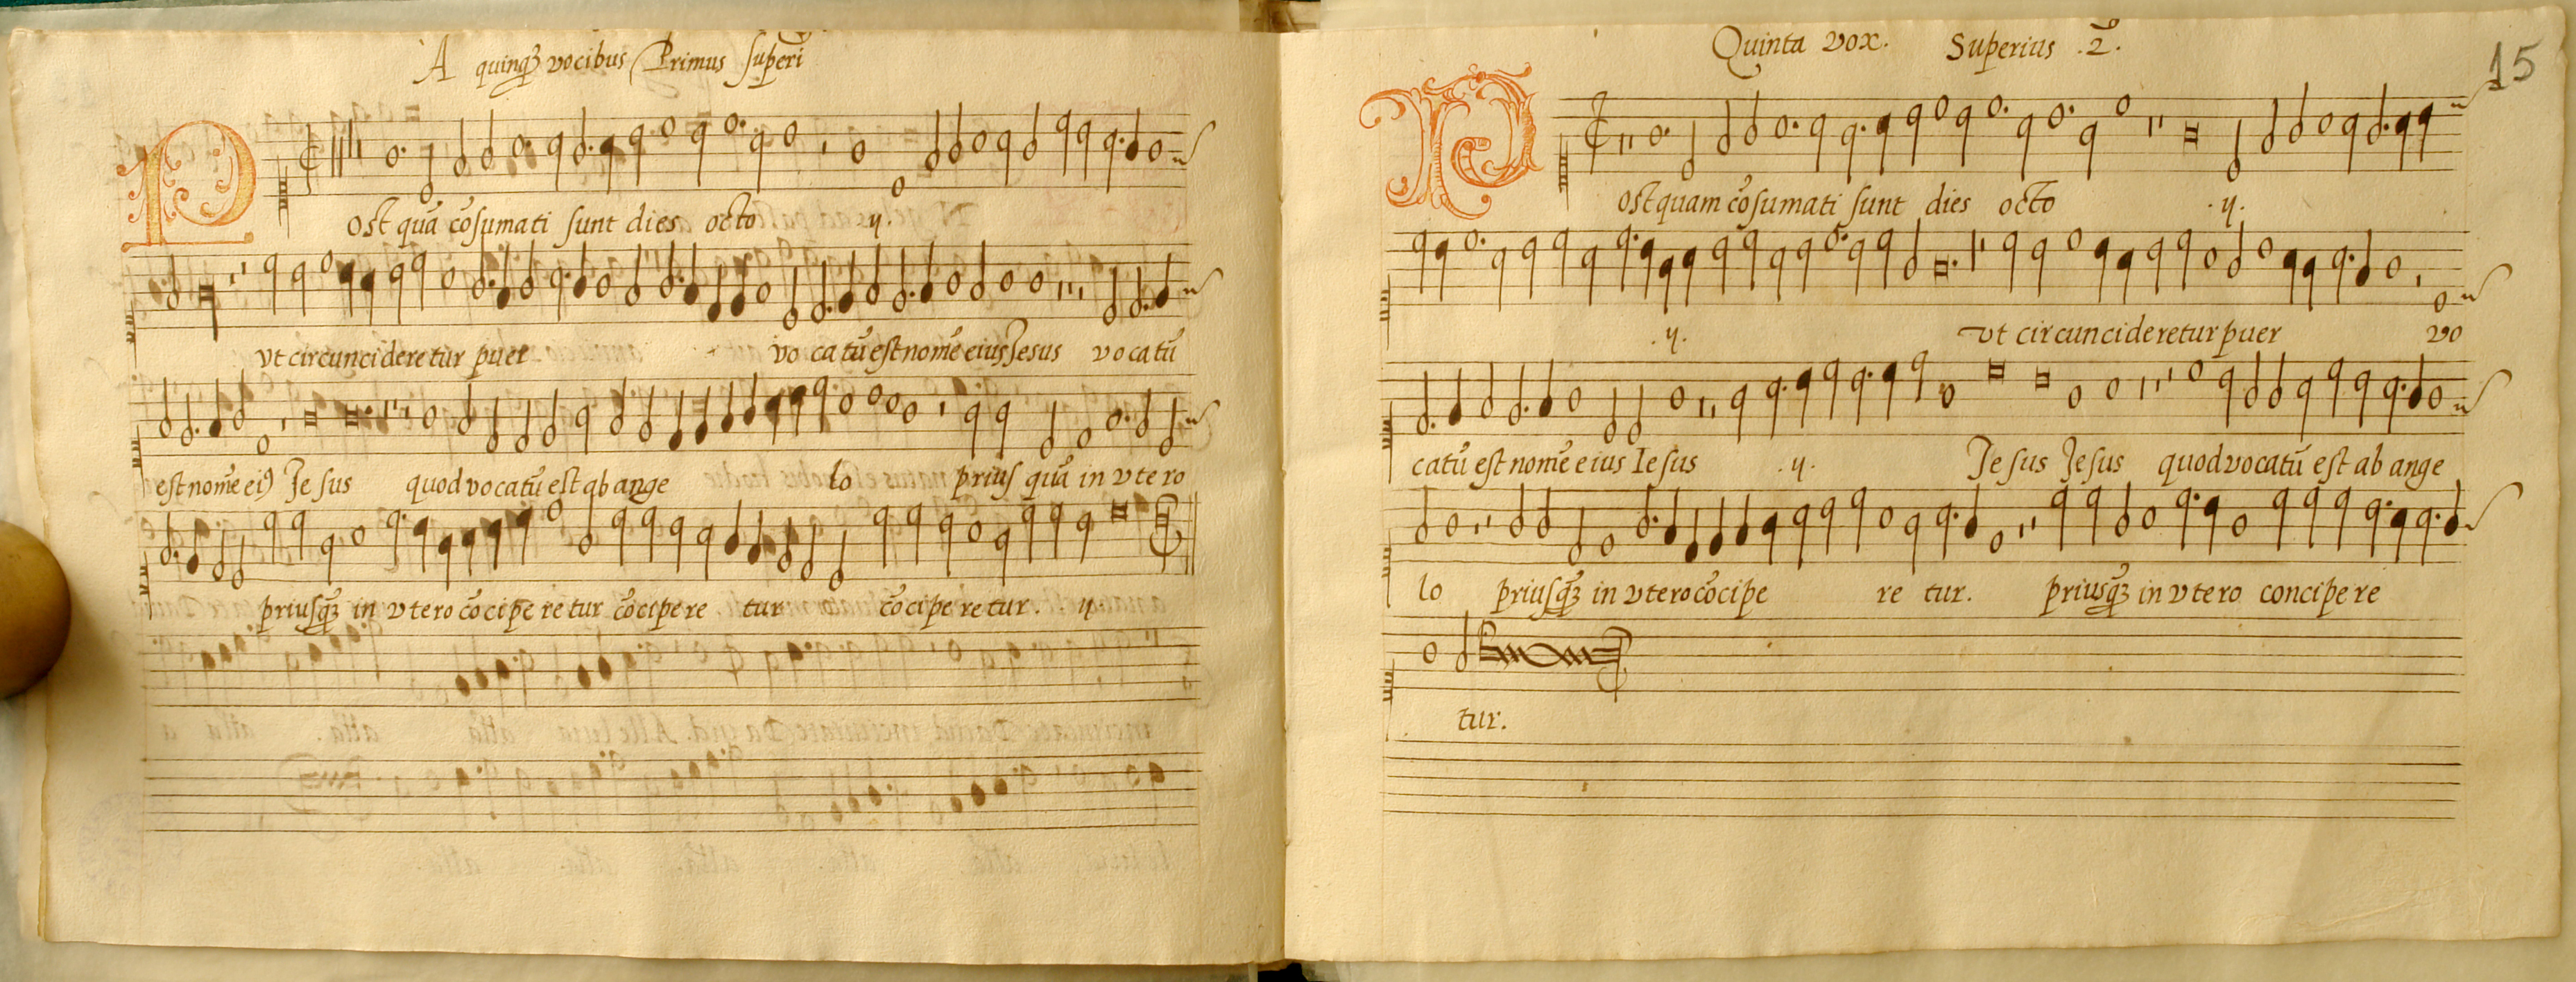 A quinqꝫ vocibus Primus superi
Post quā cōsumati sunt dies octo .ij.
vt circuncideretur puer vo catū est nomē eius Jesus vocatū
est nomē eiꝰ Jesus quod vocatū est ab ange lo prius quā in vtero
priusqꝫ in vtero cōcipe re tur cōcipere tur cōcipe re tur. ij
Quinta vox. Superius .2.
15
Postquam cōsumati sunt dies octo .ij.
.ij. vt circuncideretur puer vo
catū est nomē eius Iesus .ij. Jesus Jesus quod vocatū est ab ange
lo priusqꝫ in vtero cōcipe re tur. priusqꝫ in vtero concipere
tur.